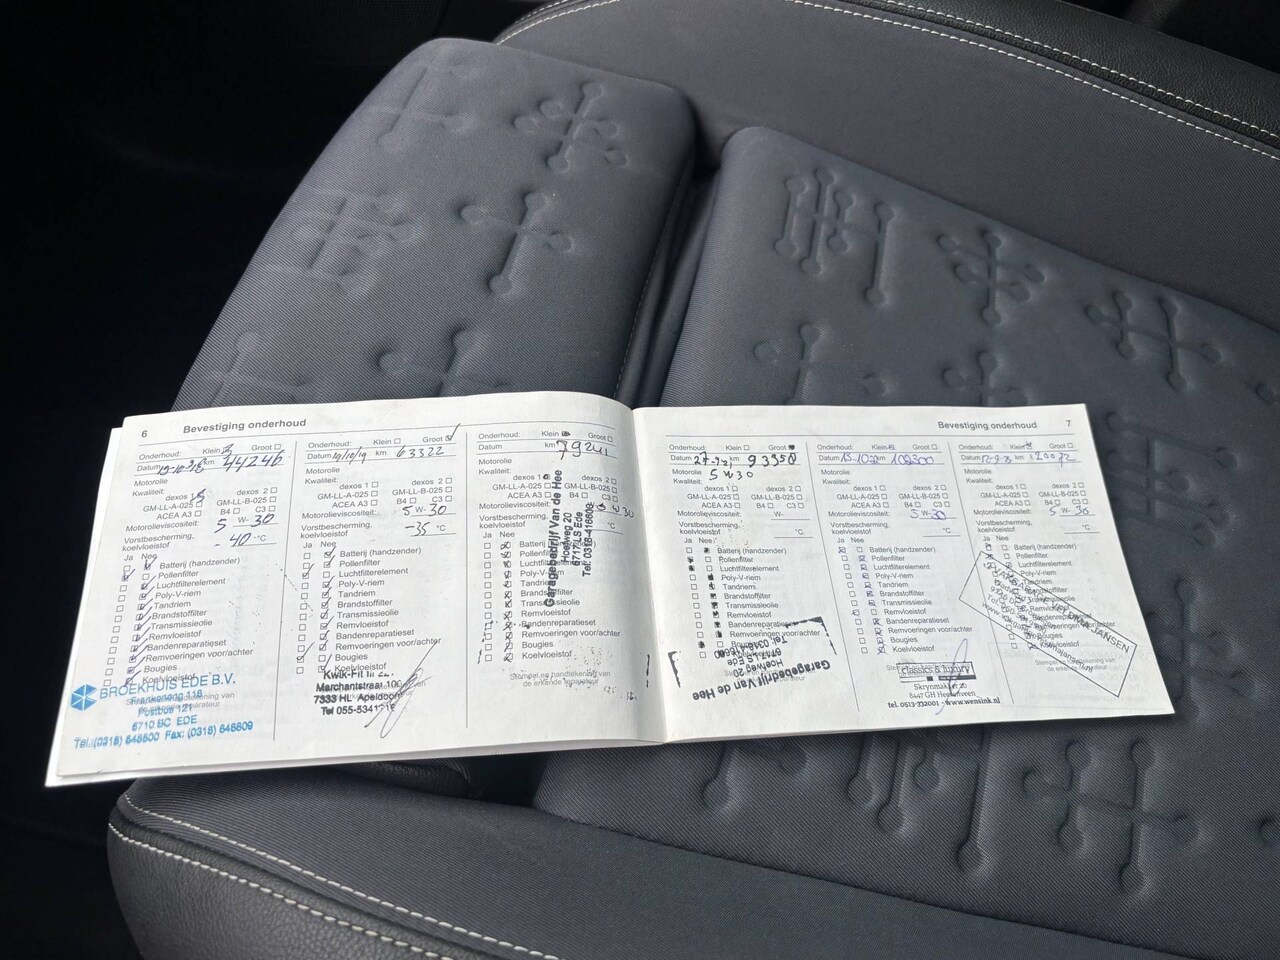 6 Bevestiging onderhoud
Onderhoud: Klein Groot
Datum km 44246
Motorolie
Kwaliteit:
dexos 1 dexos 2
GM-LL-A-025 GM-LL-B-025
ACEA A3 B4 C3
Motorolieviscositeit: 5 W- 30
Vorstbescherming,
koelvloeistof -40 °C
Ja Nee
Batterij (handzender)
Pollenfilter
Luchtfilterelement
Poly-V-riem
Tandriem
Brandstoffilter
Transmissieolie
Remvloeistof
Bandenreparatieset
Remvoeringen voor/achter
Bougies
Koelvloeistof
BROEKHUIS EDE B.V.
Frankeneng 118
Postbus 121
6710 BC EDE
Tel.:(0318) 648600 Fax: (0318) 648609
Onderhoud: Klein Groot
Datum 19/10/19 km 63322
Motorolie
Kwaliteit:
dexos 1 dexos 2
GM-LL-A-025 GM-LL-B-025
ACEA A3 B4 C3
Motorolieviscositeit: 5 W- 30
Vorstbescherming,
koelvloeistof -35 °C
Ja Nee
Batterij (handzender)
Pollenfilter
Luchtfilterelement
Poly-V-riem
Tandriem
Brandstoffilter
Transmissieolie
Remvloeistof
Bandenreparatieset
Remvoeringen voor/achter
Bougies
Koelvloeistof
Marchantstraat 100
7333 HL Apeldoorn
Onderhoud: Klein Groot
Datum km 79241
Motorolie
Kwaliteit:
dexos 1 dexos 2
GM-LL-A-025 GM-LL-B-025
ACEA A3 B4 C3
Motorolieviscositeit: 5 W 30
Vorstbescherming,
koelvloeistof °C
Ja Nee
Batterij (handzender)
Pollenfilter
Poly-V-riem
Tandriem
Brandstoffilter
Transmissieolie
Remvloeistof
Bandenreparatieset
Remvoeringen voor/achter
Bougies
Koelvloeistof
Garagebedrijf Van de Hee
Hoefweg 20
6717 LS Ede
Tel. 0318-416608
Bevestiging onderhoud 7
Onderhoud: Klein Groot
Datum km 93350
Motorolie 5 W 30
Kwaliteit:
dexos 1 dexos 2
GM-LL-A-025 GM-LL-B-025
ACEA A3 B4 C3
Motorolieviscositeit: W-
Vorstbescherming,
koelvloeistof °C
Ja Nee
Batterij (handzender)
Pollenfilter
Luchtfilterelement
Poly-V-riem
Tandriem
Brandstoffilter
Transmissieolie
Remvloeistof
Bandenreparatieset
Remvoeringen voor/achter
Garagebedrijf Van de Hee
Hoefweg 20
6717 LS Ede
Onderhoud: Klein Groot
Datum km 102300
Motorolie
Kwaliteit:
dexos 1 dexos 2
GM-LL-A-025 GM-LL-B-025
ACEA A3 B4 C3
Motorolieviscositeit: 5 W- 30
Vorstbescherming,
koelvloeistof °C
Ja Nee
Batterij (handzender)
Pollenfilter
Luchtfilterelement
Poly-V-riem
Tandriem
Brandstoffilter
Transmissieolie
Remvloeistof
Bandenreparatieset
Remvoeringen voor/achter
Bougies
Koelvloeistof
classics & luxury
Skrynmakker 20
8447 GH Heerenveen
tel. 0513-332001 - www.wensink.nl
Onderhoud: Klein Groot
Datum
Motorolie
Kwaliteit:
dexos 1 dexos 2
GM-LL-A-025 GM-LL-B-025
ACEA A3 B4 C3
Motorolieviscositeit: 5 W- 30
Vorstbescherming,
koelvloeistof °C
Ja Nee
Batterij (handzender)
Pollenfilter
Bougies
Koelvloeistof